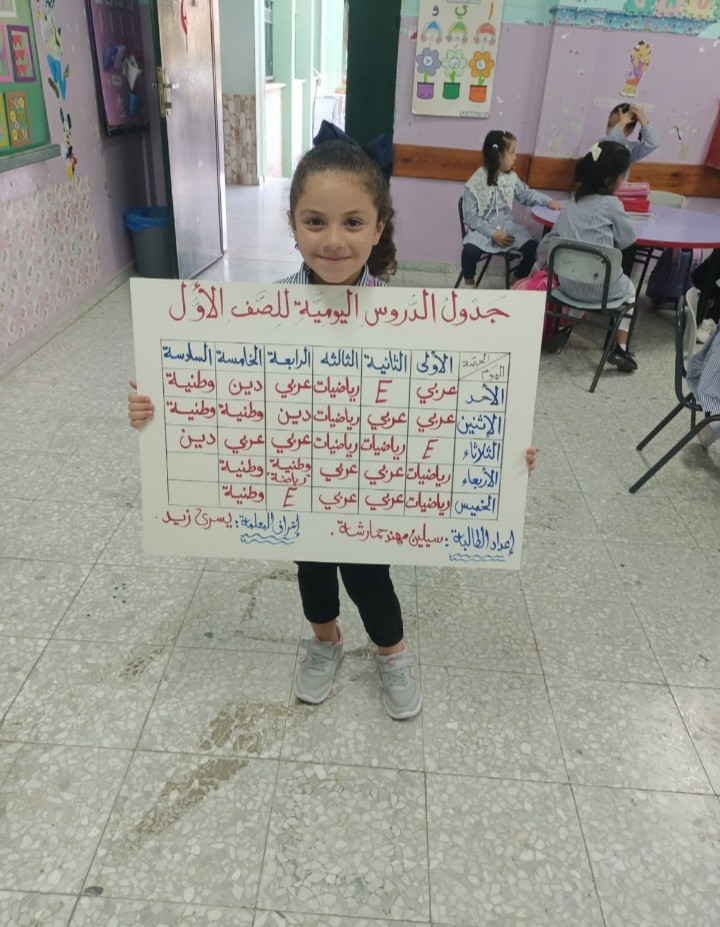 جدول الدروس اليومية للصف الأول
الحصة اليوم الأولى الثانية الثالثه الرابعة الخامسة السادسة
الأحد عربي E رياضيات عربي دين وطنية
الإثنين عربي عربي رياضيات دين وطنية وطنية
الثلاثاء E رياضيات رياضيات عربي عربي دين
الأربعاء رياضيات عربي عربي وطنية رياضة وطنية
الخميس رياضيات عربي عربي E وطنية
إعداد الطالبة: سيلين مهند حمارشة. إشراف المعلمة: يسرى زيد.
أ ب و